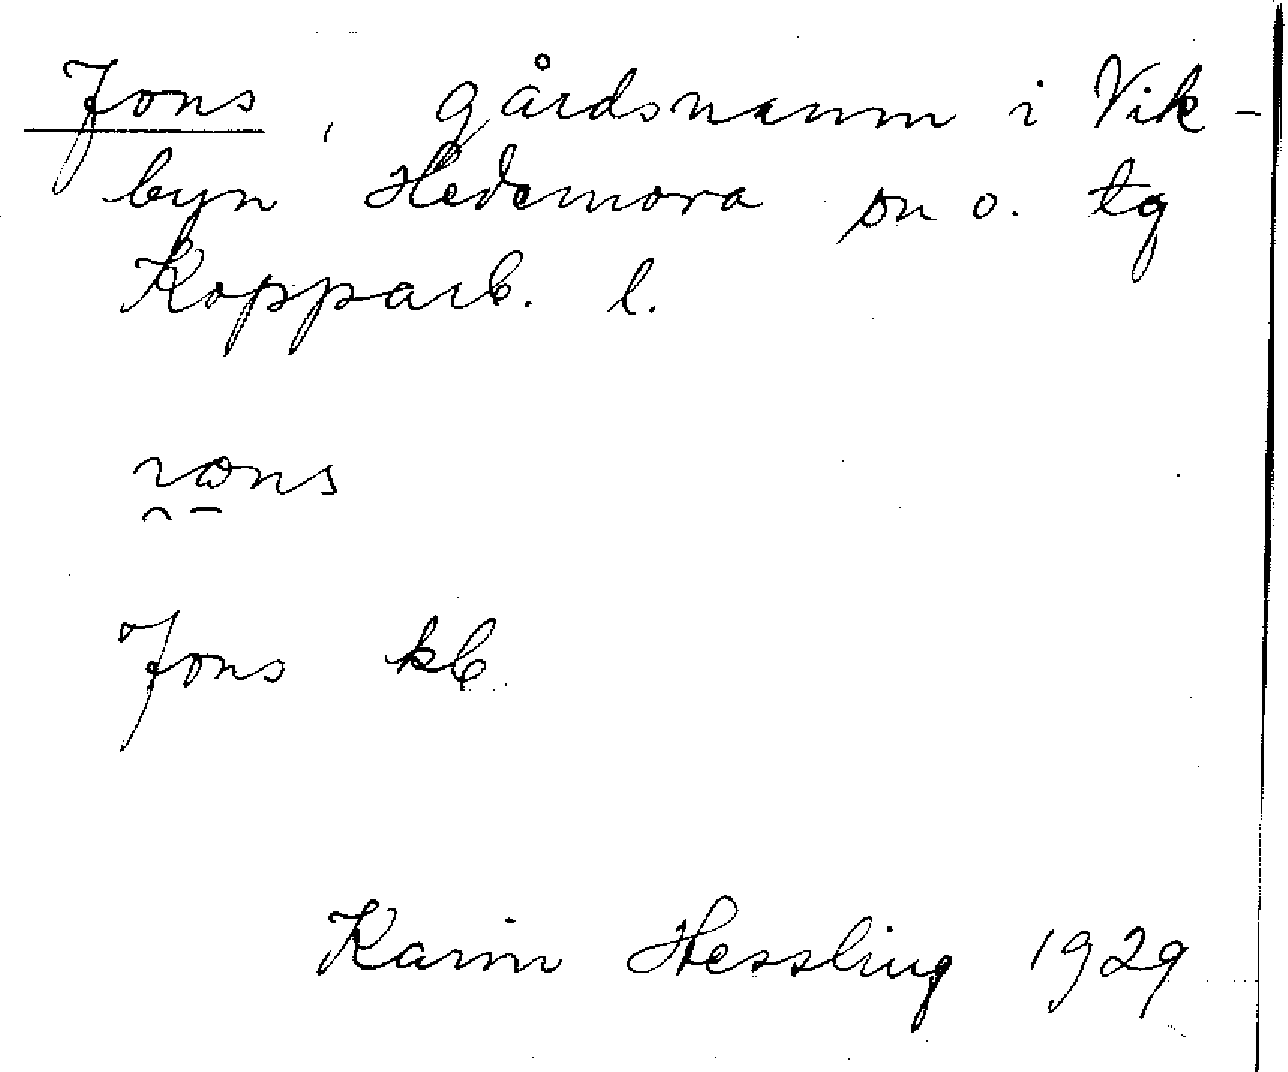 Jons, gårdsnamn i Vik-
byn Hedemora sn o. tg
Kopparb. l.
Jons kb
Karin Hessling 1929